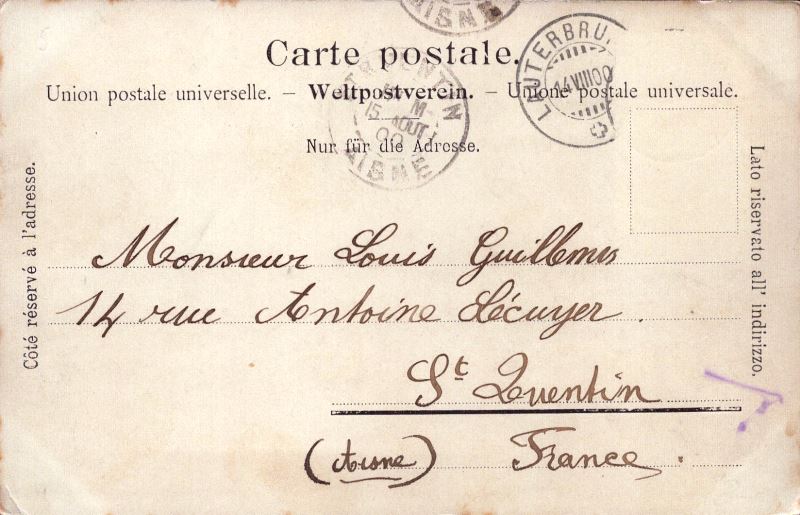 AISNE
Carte postale.
Union postale universelle. – Weltpostverein. – Unione postale universale.
Nur für die Adresse.
ST QUENTIN
15 AOUT 00
AISNE
LAUTERBRU
14 VIII 00
Côté réservé à l'adresse.
Lato riservato all' indirizzo.
Monsieur Louis Guillemes
14 rue Antoine Lécuyer.
St Quentin
(Aisne) France.